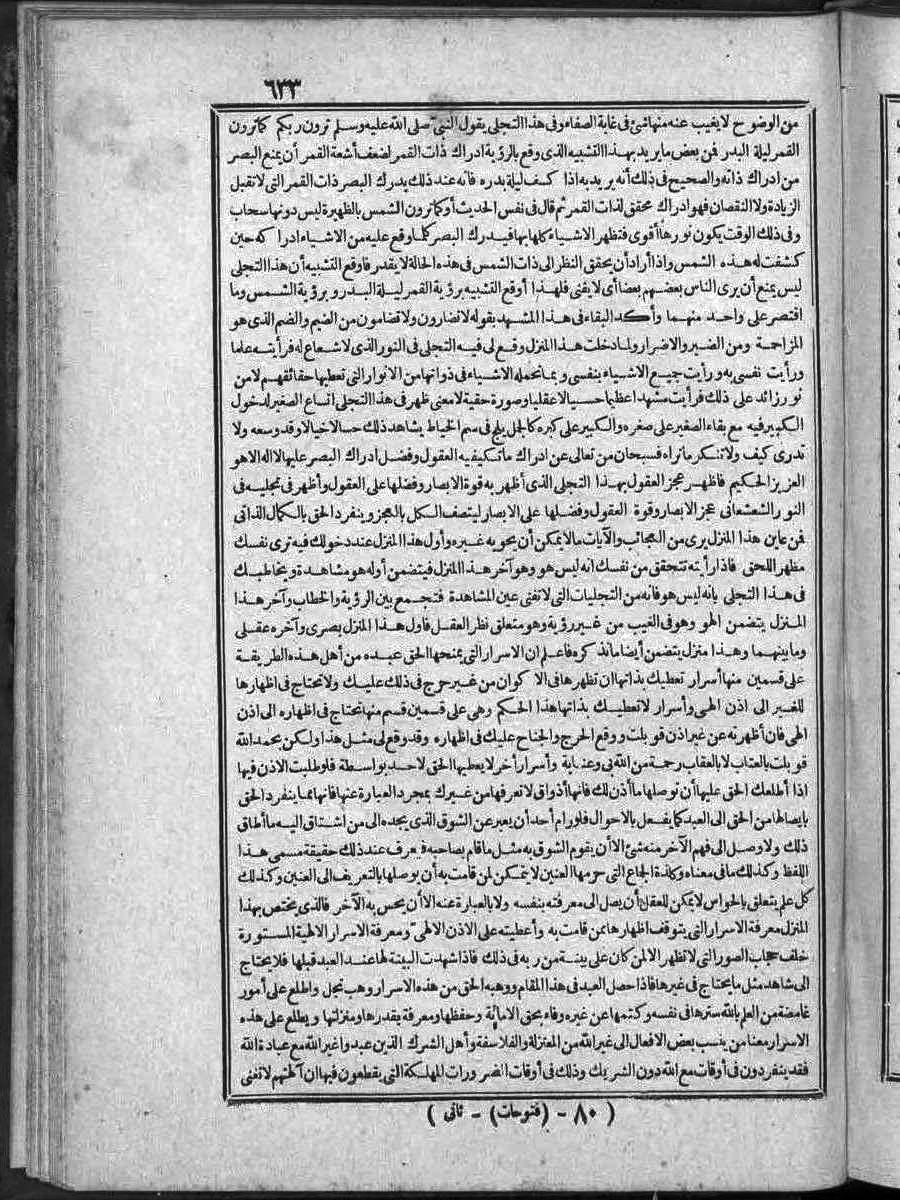 ٦٣٣
من الوضوح لا يغيب عنه منها شئ فى غاية الصفاء وفى هذا التجلى يقول النبى صلى الله عليه وسلم ترون ربكم كما ترون
القمر ليلة البدر فن بعض ما يريد بهذا التشبيه الذى وقع بالرؤية ادراك ذات القمر لضعف أشعة القمر أن يمنع البصر
من ادراك ذاته والصحيح فى ذلك أنه يريد به اذا كسف ليلة بدره فانه عند ذلك يدرك البصر ذات القمر التى لا تقبل
الزيادة ولا النقصان فهو ادراك محقق لذات القمر ثم قال فى نفس الحديث أو كما ترون الشمس بالظهيرة ليس دونها سحاب
وفى ذلك الوقت يكون نورها أقوى فتظهر الاشياء كلها بها فيدرك البصر كلما وقع عليه من الاشياء ادراكه حين
كشفت له هذه الشمس واذا أراد أن يحقق النظر الى ذات الشمس فى هذه الحالة لا يقدر فاوقع التشبيه أن هذا التجلى
ليس يمنع أن يرى الناس بعضهم بعضا أى لا يفنى فلهذا أوقع التشبيه برؤية القمر ليلة البدر و برؤية الشمس وما
اقتصر على واحد منهما وأكد البقاء فى هذا المشهد بقوله لا تضارون ولا تضامون من الضيم والضم الذى هو
المزاحمة ومن الضير والاضرار ولما دخلت هذا المنزل وقع لى فيه التجلى فى النور الذى لا شعاع له فرأيته علما
ورأيت نفسى به ورأيت جميع الاشياء بنفسى و بما تحمله الاشياء فى ذواتها من الانوار التى تعطيها حقائقهم لا من
نور زائد على ذلك فرأيت مشهدا عظيما حسيا لا عقليا وصورة حقية لا معنى ظهر فى هذا التجلى اتساع الصغير لدخول
الكبير فيه مع بقاء الصغير على صغره والكبير على كبره كالجل يلج فى سم الخياط يشاهد ذلك حسا لا خيالا وقد وسعه ولا
تدرى كيف ولا تنكر ما تراه فسبحان من تعالى عن ادراك ما تكيفيه العقول وفضل ادراك البصر عليها لا اله الا هو
العزيز الحكيم فاظهر عجز العقول بهذا التجلى الذى أظهر به قوة الابصار وفضلها على العقول وأظهر فى تجليه فى
النور الشعشعانى عجز الابصار وقوة العقول وفضلها على الابصار ليتصف الكل بالعجز و ينفرد الحق بالكمال الذاتى
فن عاين هذا المنزل يرى من العجائب والآيات ما لا يمكن أن يحويه غيره وأول هذا المنزل عند دخولك فيه ترى نفسك
مظهر اللحق فاذا رأيته تتحقق من نفسك انه ليس هو وهو آخر هذا المنزل فيتضمن أوله هو مشاهدة و يخاطبك
فى هذا التجلى بانه ليس هو فانه من التجليات التى لا تفنى عين المشاهدة فتجمع بين الرؤية والخطاب وآخر هذا
المنزل يتضمن الهو وهو فى الغيب من غير رؤية وهو متعلق نظر العقل فاول هذا المنزل بصرى وآخره عقلى
وما بينهما وهذا منزل يتضمن أيضا مانذكره فاعلم ان الاسرار التى يمنحها الحق عبده من أهل هذه الطريقة
على قسمين منها أسرار تعطيك بذاتها ان تظهرها فى الاكوان من غير حرج فى ذلك عليك ولا تحتاج فى اظهارها
للغير الى اذن الهى وأسرار لا تعطيك بذاتها هذا الحكم وهى على قسمين قسم منها تحتاج فى اظهاره الى اذن
الهى فان أظهرته عن غير اذن قوبلت ووقع الحرج والجناح عليك فى اظهاره وقد وقع لى مثل هذا ولكن بحمد الله
قوبلت بالعتاب لا بالعقاب رحمة من الله بى وعناية وأسرار أخر لا يعطيها الحق لاحد بواسطة فلو طلبت الاذن فيها
اذا أطلعك الحق عليها أن توصلها ما أذن لك فانها أذواق لا تعرفها من غيرك بمجرد العبارة عنها فانها مما ينفرد الحق
بايصالها من الحق الى العبد كما يفعل بالاحوال فلو رام أحد أن يعبر عن الشوق الذى يجده الى من اشتاق اليه ما أطاق
ذلك ولا وصل الى فهم الآخر منه شئ الا أن يقوم الشوق به مثل ما قام بصاحبه فيعرف عند ذلك حقيقة مسمى هذا
اللفظ وكذلك ما فى معناه وكلذة الجاع التى حرمها العنين لا يتمكن لمن قامت به أن يوصلها بالتعريف الى العنين وكذلك
كل علم يتعلق بالحواس لا يمكن للعقل أن يصل الى معرفته بنفسه ولا بالعبارة عنه الا أن يحس به الآخر فالذى يختص بهذا
المنزل معرفة الاسرار التى يتوقف اظهارها ممن قامت به وأعطيته على الاذن الالهى ومعرفة الاسرار الالهية المستورة
خلف حجاب الصور التى لا تظهر الا لمن كان على بينة من ربه فى ذلك فاذا شهدت البينة لها عند العبد قبلها فلا يحتاج
الى شاهد مثل ما يحتاج فى غيرها فاذا حصل العبد فى هذا المقام ووهبه الحق من هذه الاسرار وهب نجل واطلع على أمور
غامضة من العلم بالله سترها فى نفسه وكتمها عن غيره وفاء بحق الامانة وحفظها ومعرفة بقدرها ومنزلتها ويطلع على هذه
الاسرار معنا من ينسب بعض الافعال الى غير الله من المعتزلة والفلاسفة وأهل الشرك الذين عبدوا غير الله مع عبادة الله
فقد ينفردون فى أوقات مع الله دون الشريك وذلك فى أوقات الضرورات المهلكة التى يقطعون فيها ان آلهتهم لا تغنى
( ٨٠ - (فتوحات) - ثانى )